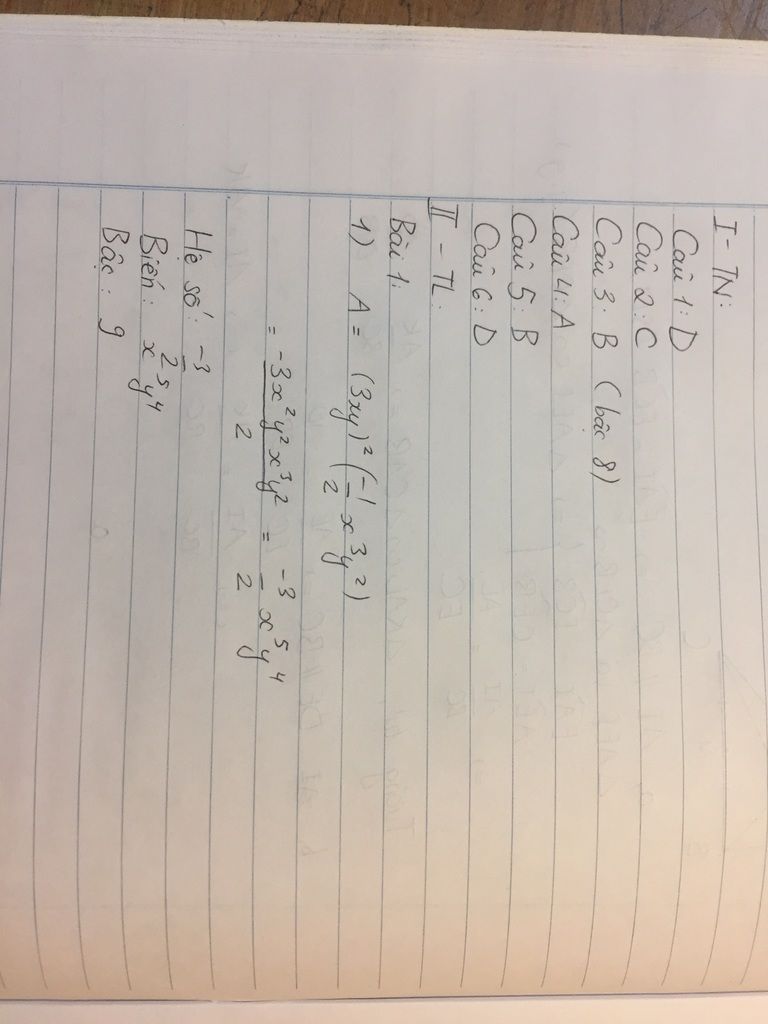 I - TN:
Câu 1: D
Câu 2: C
Câu 3: B (bậc 8)
Câu 4: A
Câu 5: B
Câu 6: D
II - TL:
Bài 1:
1) A = (3xy)² (-1/2 x³y²)
= -3x²y²x³y²/2 = -3/2 x⁵y⁴
Hệ số: -3/2
Biến: x⁵y⁴
Bậc: 9